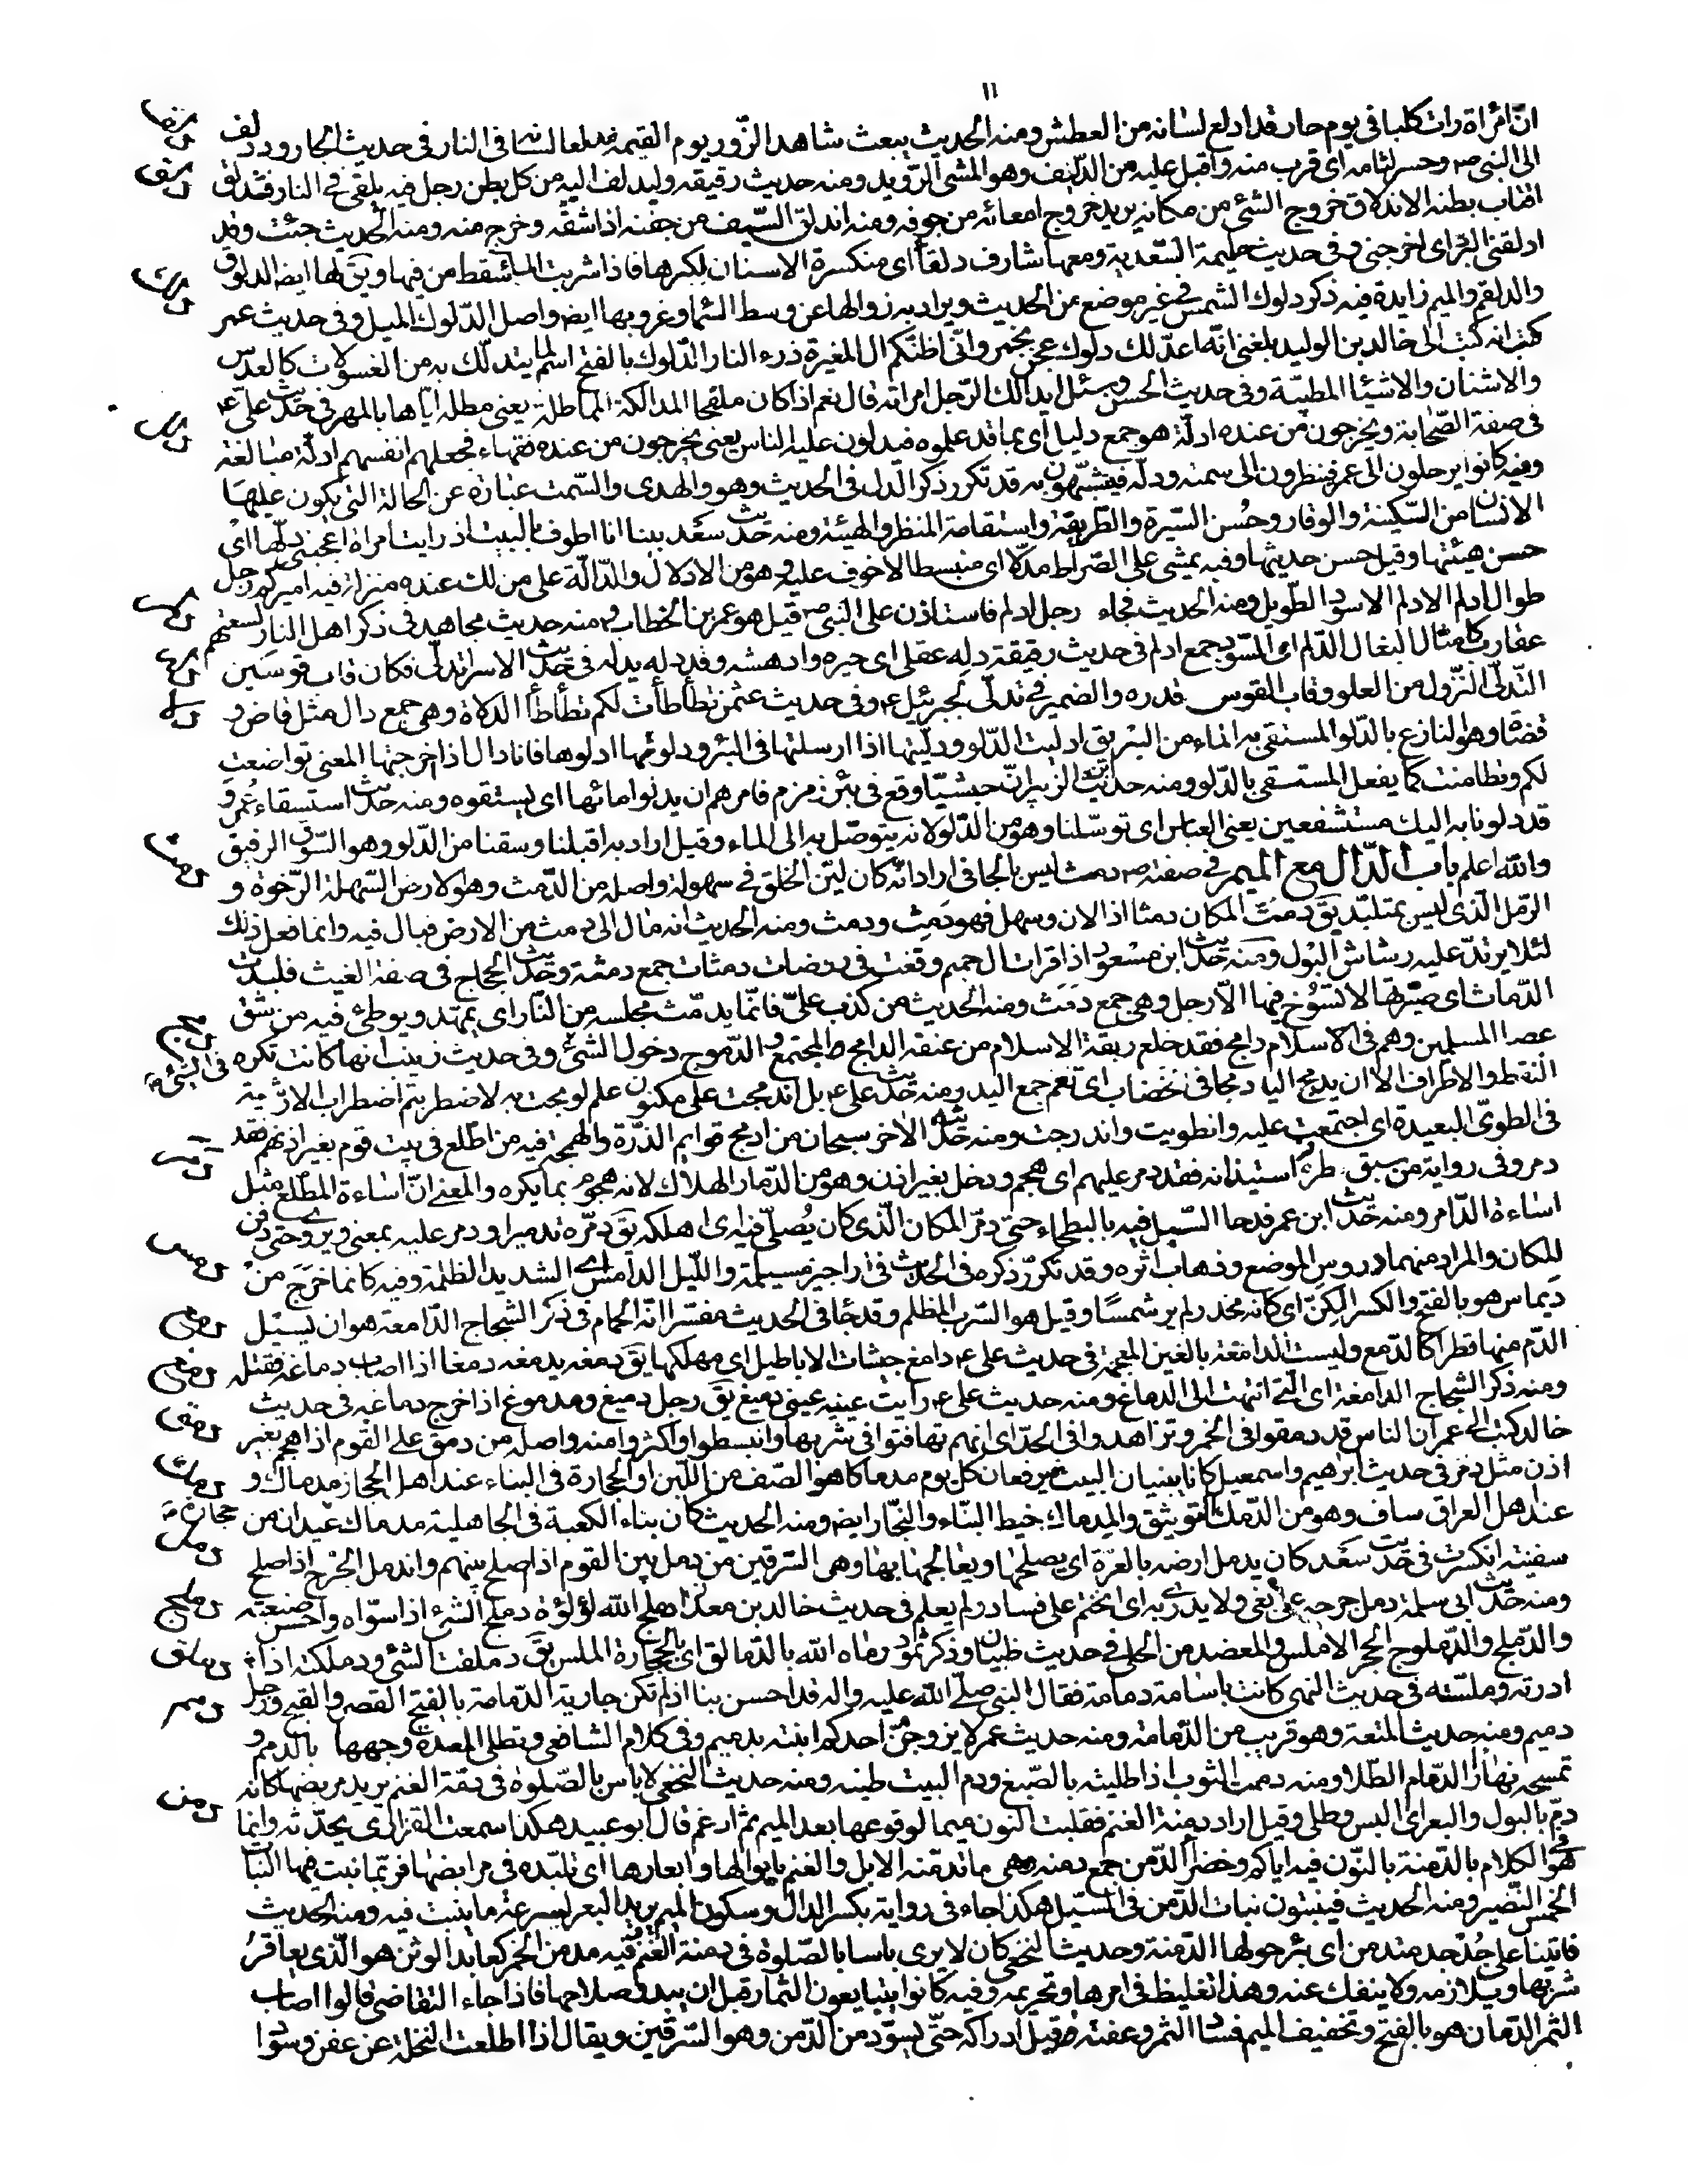 ١١
انّ امراة رات كلبا فى يوم حار قد ادلع لسانه من العطش ومنه الحديث يبعث شاهد الزّور يوم القيمه مدلعا لسانه فى النار فى حديث الجارود دلف
الى النبى ص وحسر لثامه اى قرب منه واقبل عليه من الدّليف وهو المشى الرّويد ومنه حديث رقيقه وليدلف اليه من كل بطن رجل فيه يلقى فى النار فتندلق
اقتاب بطنه الاندلاق خروج الشئ من مكانه يريد خروج امعائه من جوفه ومنه اندلق السّيف من جفنه اذا شقّه وخرج منه ومنه الحديث جئت وقد
ادلقنى البرد اى اخرجنى وفى حديث حليمة السّعدية ومعها شارف دلقاء اى منكسرة الاسنان لكبرها فاذا شربت الماء سقط من فيها ويق لها ايضا الدلوق
والدلقم والميم زايدة فيه ذكر دلوك الشمس فى غير موضع من الحديث ويراد به زوالها عن وسط السّما وغروبها ايضا واصل الدّلوك الميل وفى حديث عمر
كتب انه كتب الى خالد بن الوليد بلغنى انّه اعدّ لك دلوك عجن بخمر وانّى اظنّكم ال المغيرة ذرء النار الدّلوك بالفتح اسم لما يتدلّك به من الغسولات كالعدس
والاشنان والاشيا المطيّبة وفى حديث الحسن وسئل ايدالك الرّجل امراته قال نعم اذا كان ملفجا المدالكة المماطلة يعنى مطله ايّاها بالمهر فى حديث على ع
فى صفة الصّحابة ويخرجون من عنده ادلّة هو جمع دليل اى بما قد علموه فيدلون عليه الناس يعنى يخرجون من عنده فقهاء فجعلهم انفسهم ادلّة مبالغة
وفيه كانوا يرحلون الى عمر فينظرون الى سمته ودلّه فيتشبّهون به قد تكرر ذكر الدّل فى الحديث وهو والهدى والسّمت عبارة عن الحالة التى يكون عليها
الانسان من السّكينة والوقار وحُسن السّيرة والطّريقة واستقامة المنظر والهيئة ومنه حديث سعد بينا انا اطوف بالبيت اذ رايت امراة اعجبنى دلّها اى
حسن هيئتها وقيل حسن حديثها وفيه يمشى على الصّراط مدلّا اى منبسطا لا خوف عليه وهو من الادلال والدّالّة على من لك عنده منزلة فيه اميركم رجل
طوال ادلم الادلم الاسود الطّويل ومنه الحديث فجاء رجل ادلم فاستاذن على النبى ص قيل هو عمر بن الخطاب ومنه حديث مجاهد فى ذكر اهل النار لسعتهم
عقارب كامثال البغال الدّلم اى السّود جمع ادلم فى حديث رقيقة دله عقلى اى حيره وادهشه وقد دله يدله فى حديث الاسرا تدلّى فكان قاب قوسين
التّدلّى النّزول من العلو وقاب القوس قدره والضمير فى تدلّى لجبرئيل ع وفى حديث عثمن تطأطأت لكم تطأطأ الدلاة وهى جمع دال مثل قاض و
قضاة وهو النازع بالدّلو المستقى به الماء من البئر يق ادليت الدّلو ودلّيتها اذا ارسلتها فى البئر ودلوتها ادلوها فانا دال اذا اخرجتها المعنى تواضعت
لكم وتطامنت كما يفعل المستسقى بالدّلو ومنه حديث الزبير انّ حبشيّا وقع فى بئر زمزم فامرهم ان يدلوا مائها اى يستقوه ومنه حديث استسقاء عمر و
قد دلونا به اليك مستشفعين يعنى العباس اى توسّلنا وهو من الدّلو لانه يتوصّل به الى الماء وقيل اراد به اقبلنا وسقنا من الدّلو وهو السّوق الرفيق
والله اعلم باب الدّال مع الميم فى صفته ص دمث ليس بالجافى اراد انّه كان ليّن الخلق فى سهولة واصله من الدّمث وهو الارض السّهلة الرّخوة و
الرّمل الّذى ليس بمتلبّد يق دمث المكان دمثا اذا لان وسهل فهو دَمِث ودمث ومنه الحديث انه مال الى دمث من الارض فبال فيه وانما فعل ذلك
لئلا يرتدّ عليه رشاش البول ومنه حديث ابن مسعود اذا قرات ال حميم وقعت فى روضات دمثات جمع دمثة وحديث الحجاج فى صفة الغيث فلبدت
الدّماث اى صيّرتها لا تسوخ فيها الارجل وهى جمع دمث ومنه الحديث من كذب علىّ فانّما يدمّث مجلسه من النّار اى يمهّد ويوطئ فيه من شق
عصا المسلمين وهم فى الاسلام دامج فقد خلع ربقة الاسلام من عنقه الدامج المجتمع والدّموج دخول الشئ فى الشئ وفى حديث زينب انها كانت تكره
النقط والاطراف الا ان يدمج اليد دمجا فى الخضاب اى تعم جميع اليد ومنه حديث على ع بل اندمجت على مكنون علم لو بحت به لاضطربتم اضطراب الارشية
فى الطوىّ البعيدة اى اجتمعت عليه وانطويت واندرجت ومنه حديثه الاخر سبحان من ادمج قوايم الذّرة والهمجة فيه من اطّلع فى بيت قوم بغير اذنهم فقد
دمر وفى رواية من سبق طرفه استيذانه فقد دمر عليهم اى هجم ودخل بغير اذن وهو من الدّمار الهلاك لانه هجوم بما يكره والمعنى انّ اساءة المطّلع مثل
اساءة الدّامر ومنه حديث ابن عمر فدحا السّيل فيه بالبطحاء حتى دمّر المكان الّذى كان يُصلّى فيه اى اهلكه يق دمّره تدميرا ودمر عليه بمعنى ويروى حتى دفن
المكان والمراد منهما دروس الموضع وذهاب اثره وقد تكرّر ذكره فى الحديث فى اراجيز مسيلمة والليل الدامس اى الشديد الظلمة وفيه كانما خرج من
ديماس هو بالفتح والكسر الكِنّ اى كانه مخدر لم ير شمسًا وقيل هو السّرب المظلم وقد جا فى الحديث مفسّرا انّه الحمام فى ذكر الشجاج الدّامعة هو ان يسيل
الدّم منها قطرا كالدّمع وليست الدامغة بالغين المعجمة فى حديث على ع دامغ جيشات الاباطيل اى مهلكها يق دمغه يدمغه دمغا اذا اصاب دماغه فقتله
ومنه ذكر الشجاج الدامغة اى الّتى انتهت الى الدماغ ومنه حديث على ع رايت عينيه عينى دميغ يق رجل دميغ ومدموغ اذا خرج دماغه فى حديث
خالد كتب الى عمر ان الناس قد دمقوا فى الخمر وتزاهدوا فى الحدّ اى انهم تهافتوا فى شربها وانبسطوا واكثروا منه واصله من دمق على القوم اذا هجم بغير
اذن مثل دمر فى حديث ابرهيم واسمعيل كانا يبنيان البيت فيرفعان كل يوم مدماكا هو الصّف من اللّبن او الحجارة فى البناء عند اهل الحجاز مدماك و
عند اهل العراق ساف وهو من الدّمك التوثيق والمدماك خيط البنّاء والنجّار ايضا ومنه الحديث كان بناء الكعبة فى الجاهلية مدماك حجارة ومدماك عيدان من
سفينة انكسرت فى حديث سعد كان يدمل ارضه بالعرّة اى يصلحها ويعالجها بها وهى السّرقين من دمل بين القوم اذا اصلح بينهم واندمل الجُرح اذا صلح
ومنه حديث ابى سلمة دمل جرحه على بغى ولا يدرى به اى انختم على فساد ولم يعلم فى حديث خالد بن معدان دملج الله لؤلؤة دملج الشئ اذا سوّاه واحسن صنعته
والدّملج والدّملوج الحجر الاملس والمعضد من الحلى فى حديث ظبيان وذكر ثمود رماه الله بالدّمالق اى بالحجارة الملس يق دملقت الشئ ودملكته اذا
ادرته وملسته فى حديث النمرى كانت باسامة دمامة فقال النبى صلى الله عليه واله قد احسن بنا اذ لم تكن جارية الدّمامة بالفتح القصر والقبح ورجل
دميم ومنه حديث المتعة وهو قريب من الدّمامة ومنه حديث عمر لا يزوجنّ احدكم ابنته بدميم وفى كلام الشافعى وتطلى المعدة وجهها بالدمم و
تمسحه نهارا الدّمام الطّلا ومنه دممت الثوب اذا طليته بالصّبغ ودم البيت طينه ومنه حديث النخعى لا باس بالصّلوة فى دمّة الغنم يريد مربضها كانه
دمّ بالبول والبعر اى البس وطلى وقيل اراد دمنة الغنم فقلبت النون ميما لوقوعها بعد الميم ثم ادغم قال ابو عبيد هكذا سمعت الفزارى يحدّثه وانّما
هو الكلام بالدّمنة بالنّون فيه اياكم وخضراء الدّمن جمع دمنه وهى ما تدمّنه الابل والغنم بابوالها وابعارها اى تلبّده فى مرابضها فربّما نبت فيها النبات
الحسن النّضير ومنه الحديث فينبتون نبات الدّمن فى السّيل هكذا جاء فى رواية بكسر الدال وسكون الميم يريد البعر لسرعة ما ينبت فيه ومنه الحديث
فاتينا على جُدْجد متدمن اى بئر حولها الدّمنة وحديث النخعى كان لا يرى باسا بالصّلوة فى دمنة الغنم فيه مدمن الخمر كعابد الوثن هو الّذى يعاقرُ
شربها ويلازمه ولا ينفك عنه وهذا تغليظ فى امرها وتحريمه وفيه كانوا يتبايعون الثمار قبل ان يبدو صلاحها فاذا جاء التقاضى قالوا اصاب
الثمر الدّمان هو بالفتح وتخفيف الميم فساد الثمر وعفنه قبل ادراكه حتّى يسوّد من الدّمن وهو السّرقين ويقال اذا اطلعت النخلة عن عفن وسواد